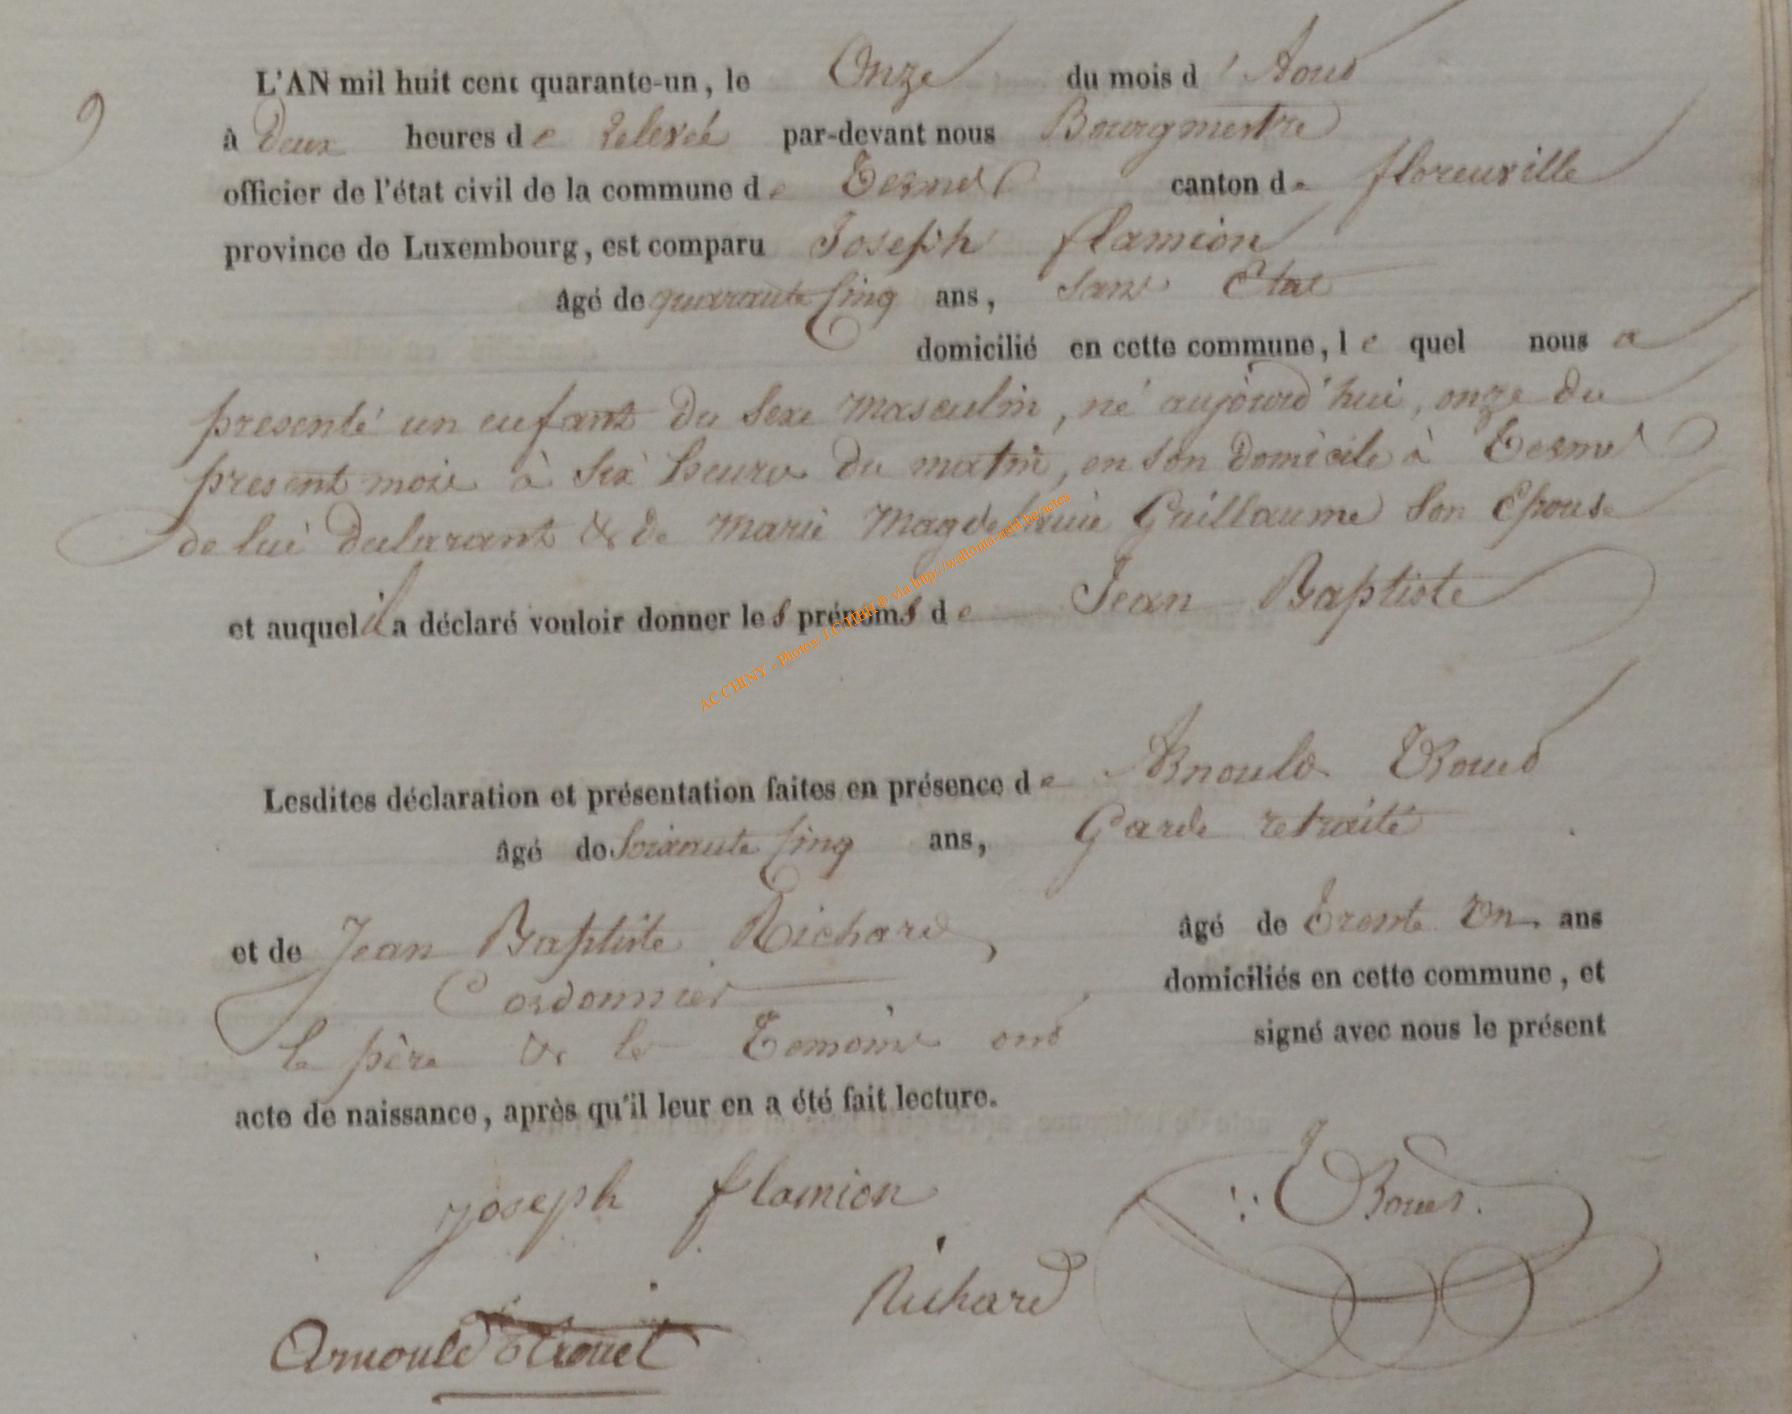 9
L'AN mil huit cent quarante-un, le Onze du mois d'Aout
à Deux heures de relevée par-devant nous Bourgmestre
officier de l'état civil de la commune de Termes canton de florenville
province de Luxembourg, est comparu Joseph flamion
âgé de quarante Cinq ans, sans Etat
domicilié en cette commune, le quel nous a
presenté un enfant du sexe masculin, né aujourd'hui, onze du
present mois à six heures du matin, en son domicile à Termes
de lui declarant & de Marie Magdelaine Guillaume son Epouse
et auquel il a déclaré vouloir donner les prénoms de Jean Baptiste
AC CHINY - Photos J.C HBH © via http://wallonia-asbl.be/actes
Lesdites déclaration et présentation faites en présence de Arnould Trouet
âgé de soixante Cinq ans, Garde retraité
et de Jean Baptiste Richard, âgé de Trente Un ans
Cordonnier domiciliés en cette commune, et
le père & les Temoins ont signé avec nous le présent
acte de naissance, après qu'il leur en a été fait lecture.
Joseph flamion
Richard
Arnould Trouet